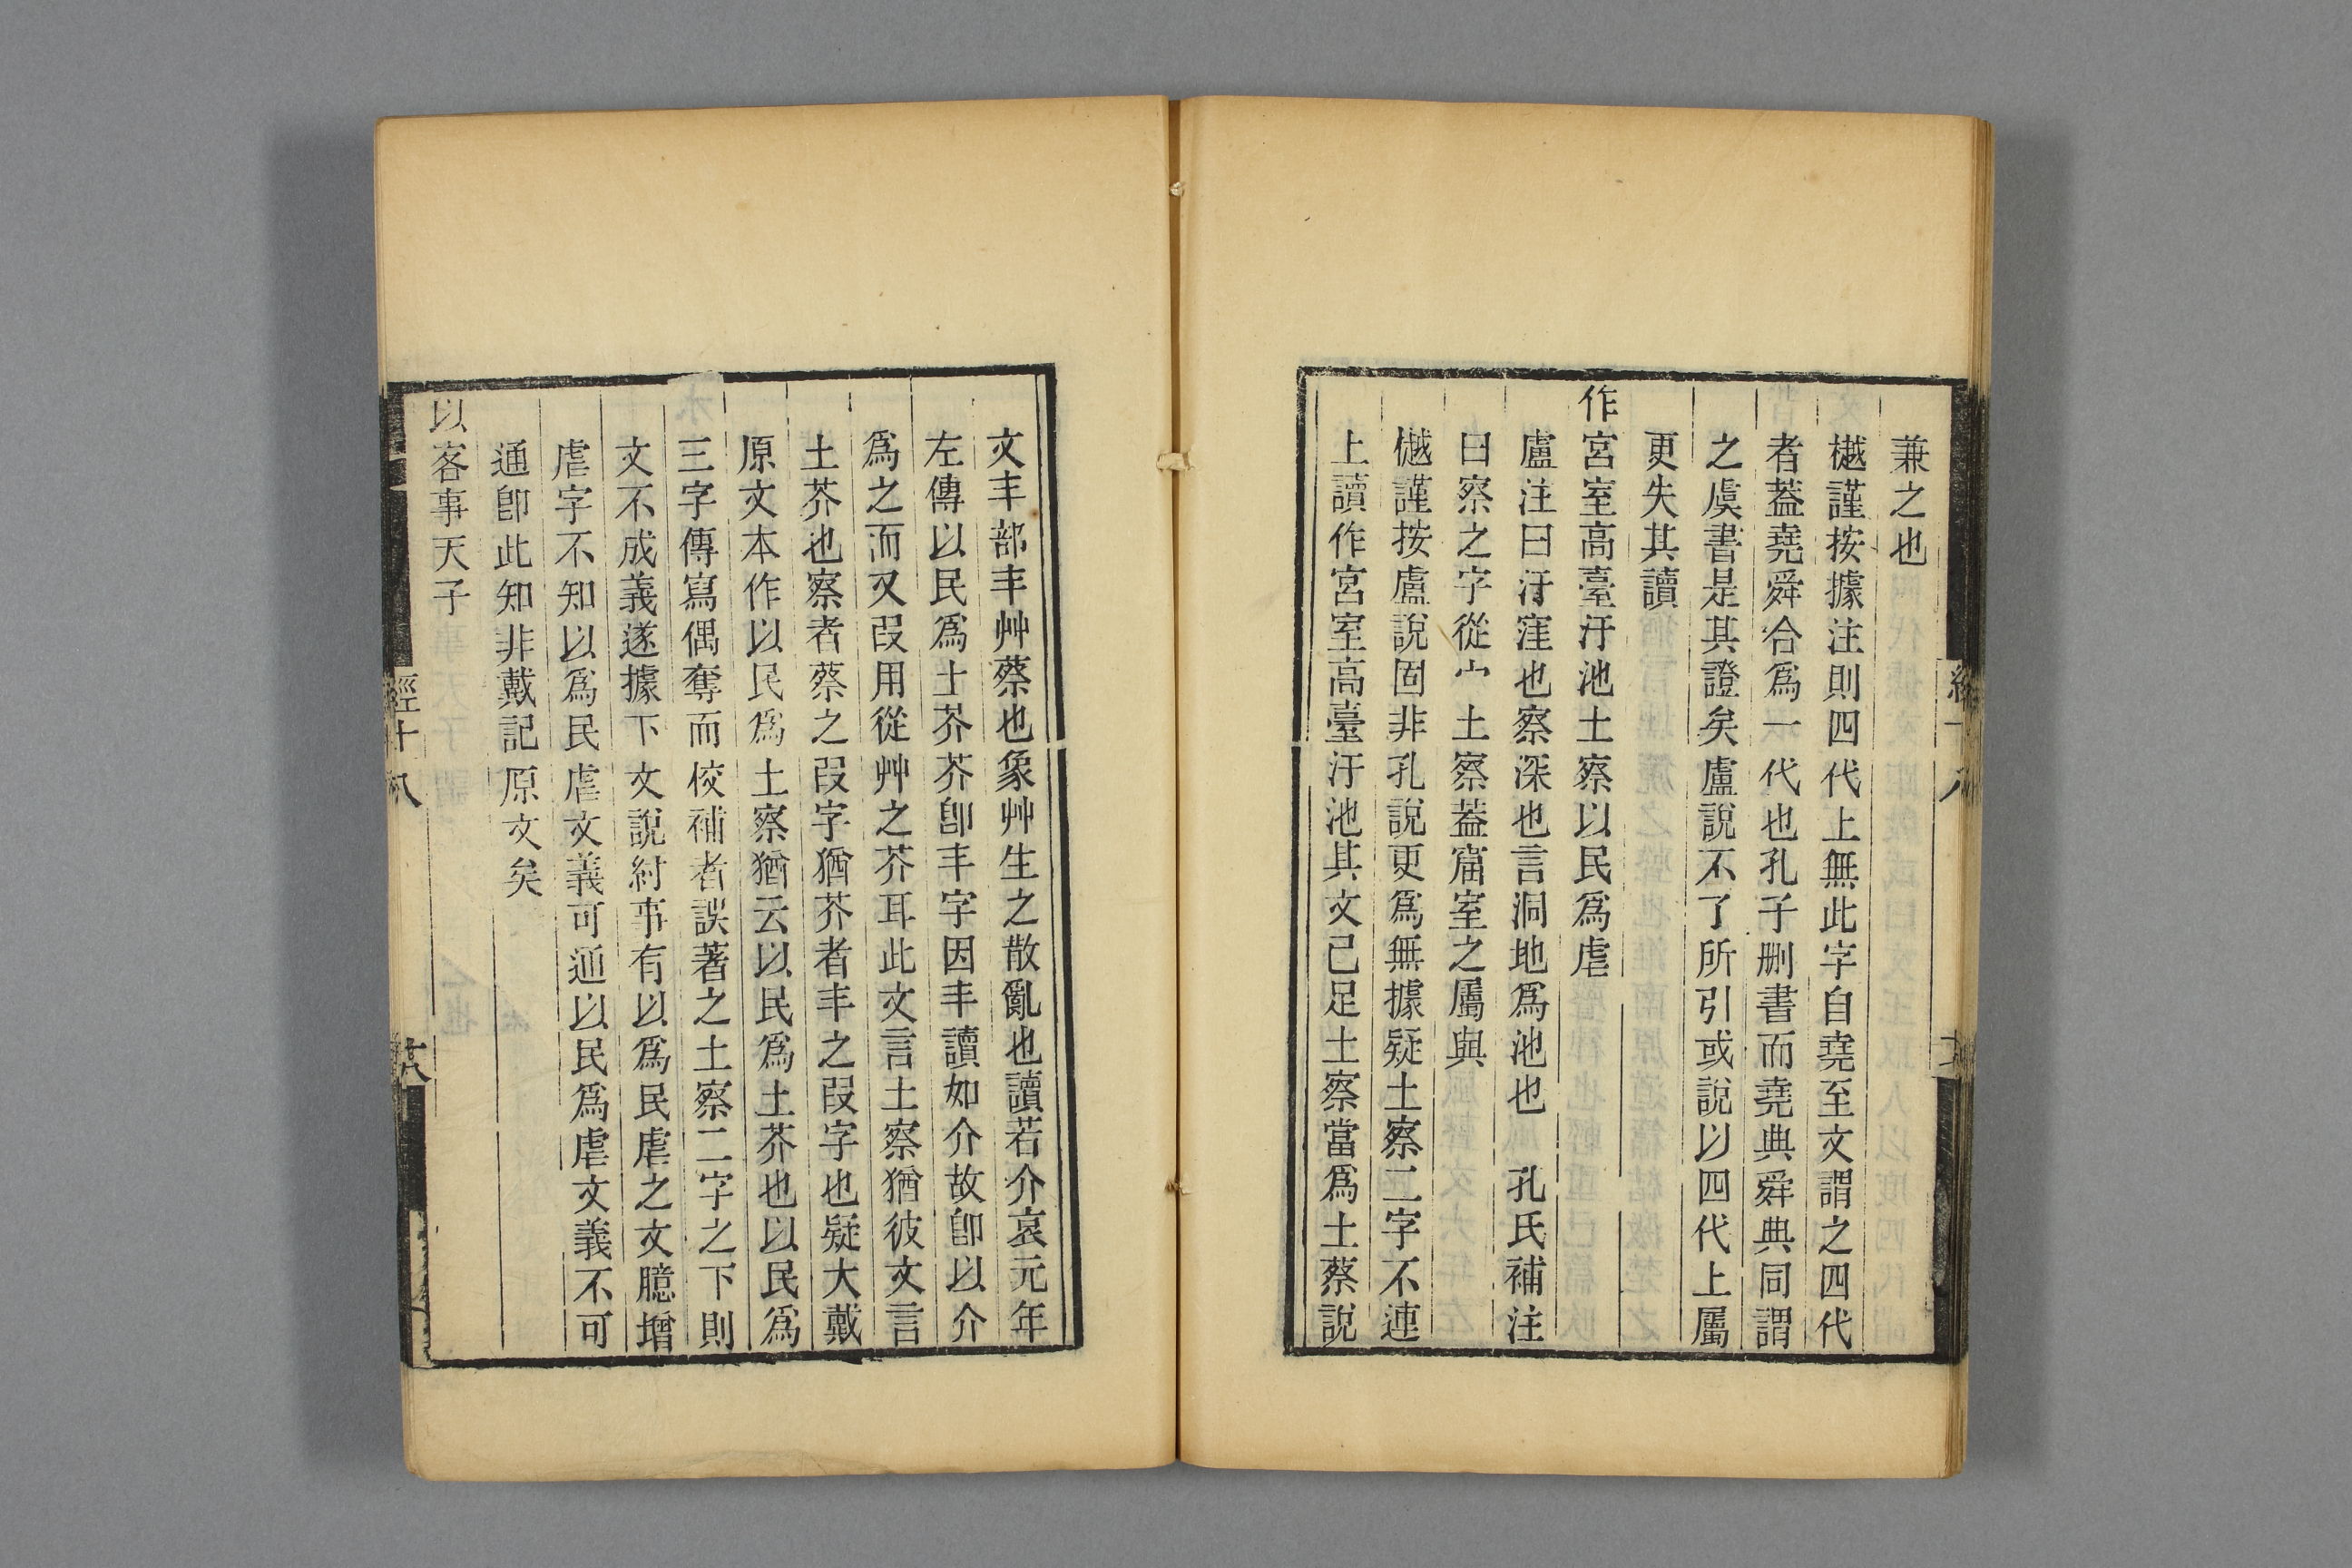 兼之也
樾謹按據注則四代上無此字自堯至文謂之四代
者蓋堯舜合爲一代也孔子删書而堯典舜典同謂
之虞書是其證矣盧說不了所引或說以四代上屬
更失其讀
作宮室高臺汙池土察以民爲虐
盧注曰汙窪也察深也言洞地爲池也　孔氏補注
曰察之字從宀土察蓋窟室之屬與
樾謹按盧說固非孔說更爲無據疑土察二字不連
上讀作宮室高臺汙池其文已足土察當爲土蔡說
文丰部丰艸蔡也象艸生之散亂也讀若介哀元年
左傳以民爲土芥芥卽丰字因丰讀如介故卽以介
爲之而又叚用從艸之芥耳此文言土察猶彼文言
土芥也察者蔡之叚字猶芥者丰之叚字也疑大戴
原文本作以民爲土察猶云以民爲土芥也以民爲
三字傳寫偶奪而校補者誤著之土察二字之下則
文不成義遂據下文說紂事有以爲民虐之文臆增
虐字不知以爲民虐文義可通以民爲虐文義不可
通卽此知非戴記原文矣
以客事天子
經十八